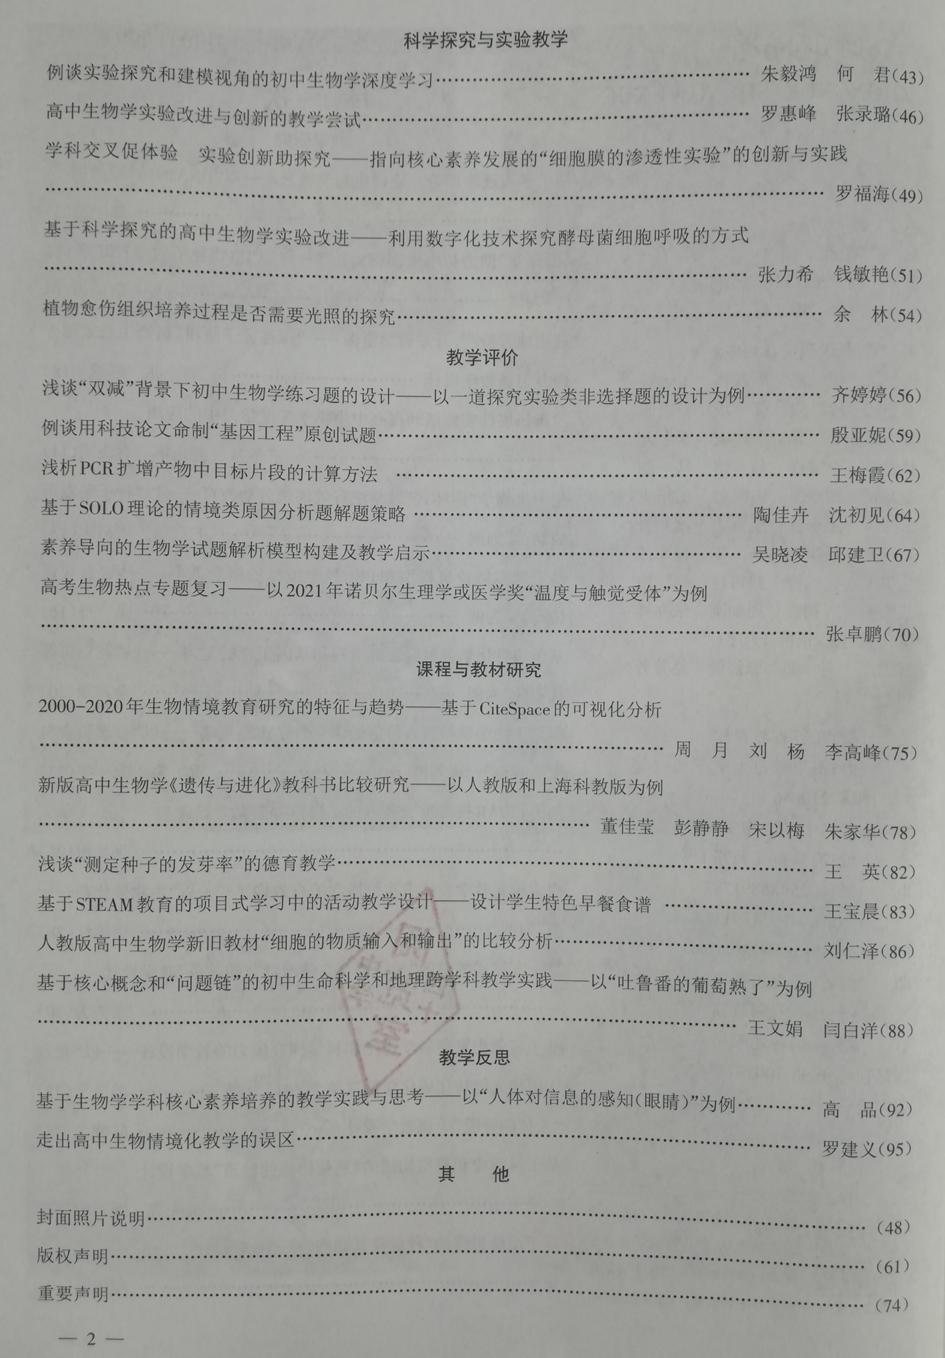 科学探究与实验教学
例谈实验探究和建模视角的初中生物学深度学习…………………………………………… 朱毅鸿　何　君(43)
高中生物学实验改进与创新的教学尝试……………………………………………………… 罗惠峰　张录璐(46)
学科交叉促体验　实验创新助探究——指向核心素养发展的“细胞膜的渗透性实验”的创新与实践
…………………………………………………………………………………………………………… 罗福海(49)
基于科学探究的高中生物学实验改进——利用数字化技术探究酵母菌细胞呼吸的方式
………………………………………………………………………………………………… 张力希　钱敏艳(51)
植物愈伤组织培养过程是否需要光照的探究………………………………………………………… 余　林(54)
教学评价
浅谈“双减”背景下初中生物学练习题的设计——以一道探究实验类非选择题的设计为例………… 齐婷婷(56)
例谈用科技论文命制“基因工程”原创试题…………………………………………………………… 殷亚妮(59)
浅析PCR扩增产物中目标片段的计算方法 ………………………………………………………… 王梅霞(62)
基于SOLO理论的情境类原因分析题解题策略 ……………………………………………… 陶佳卉　沈初见(64)
素养导向的生物学试题解析模型构建及教学启示…………………………………………… 吴晓凌　邱建卫(67)
高考生物热点专题复习——以2021年诺贝尔生理学或医学奖“温度与触觉受体”为例
…………………………………………………………………………………………………………… 张卓鹏(70)
课程与教材研究
2000-2020年生物情境教育研究的特征与趋势——基于CiteSpace的可视化分析
……………………………………………………………………………………… 周　月　刘　杨　李高峰(75)
新版高中生物学《遗传与进化》教科书比较研究——以人教版和上海科教版为例
…………………………………………………………………………… 董佳莹　彭静静　宋以梅　朱家华(78)
浅谈“测定种子的发芽率”的德育教学………………………………………………………………… 王　英(82)
基于STEAM教育的项目式学习中的活动教学设计——设计学生特色早餐食谱 …………………… 王宝晨(83)
人教版高中生物学新旧教材“细胞的物质输入和输出”的比较分析………………………………… 刘仁泽(86)
基于核心概念和“问题链”的初中生命科学和地理跨学科教学实践——以“吐鲁番的葡萄熟了”为例
………………………………………………………………………………………………… 王文娟　闫白洋(88)
教学反思
基于生物学学科核心素养培养的教学实践与思考——以“人体对信息的感知(眼睛)”为例………… 高　品(92)
走出高中生物情境化教学的误区……………………………………………………………………… 罗建义(95)
其　　他
封面照片说明………………………………………………………………………………………………… (48)
版权声明……………………………………………………………………………………………………… (61)
重要声明……………………………………………………………………………………………………… (74)
— 2 —